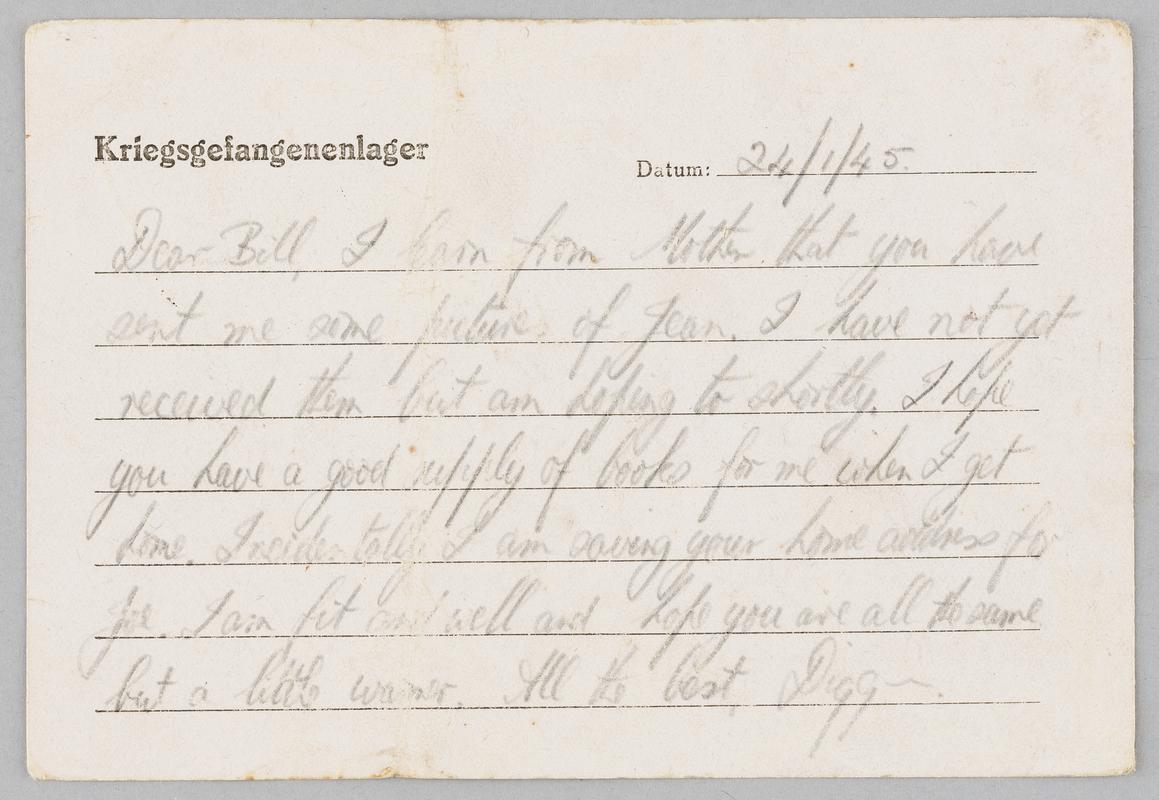 Kriegsgefangenenlager
Datum: 24/1/45.
Dear Bill, I learn from Mother that you have
sent me some pictures of Jean. I have not yet
received them but am hoping to shortly. I hope
you have a good supply of books for me when I get
home. Incidentally I am saving your home address for
Joe. I am fit and well and hope you are all the same
but a little warmer. All the best,